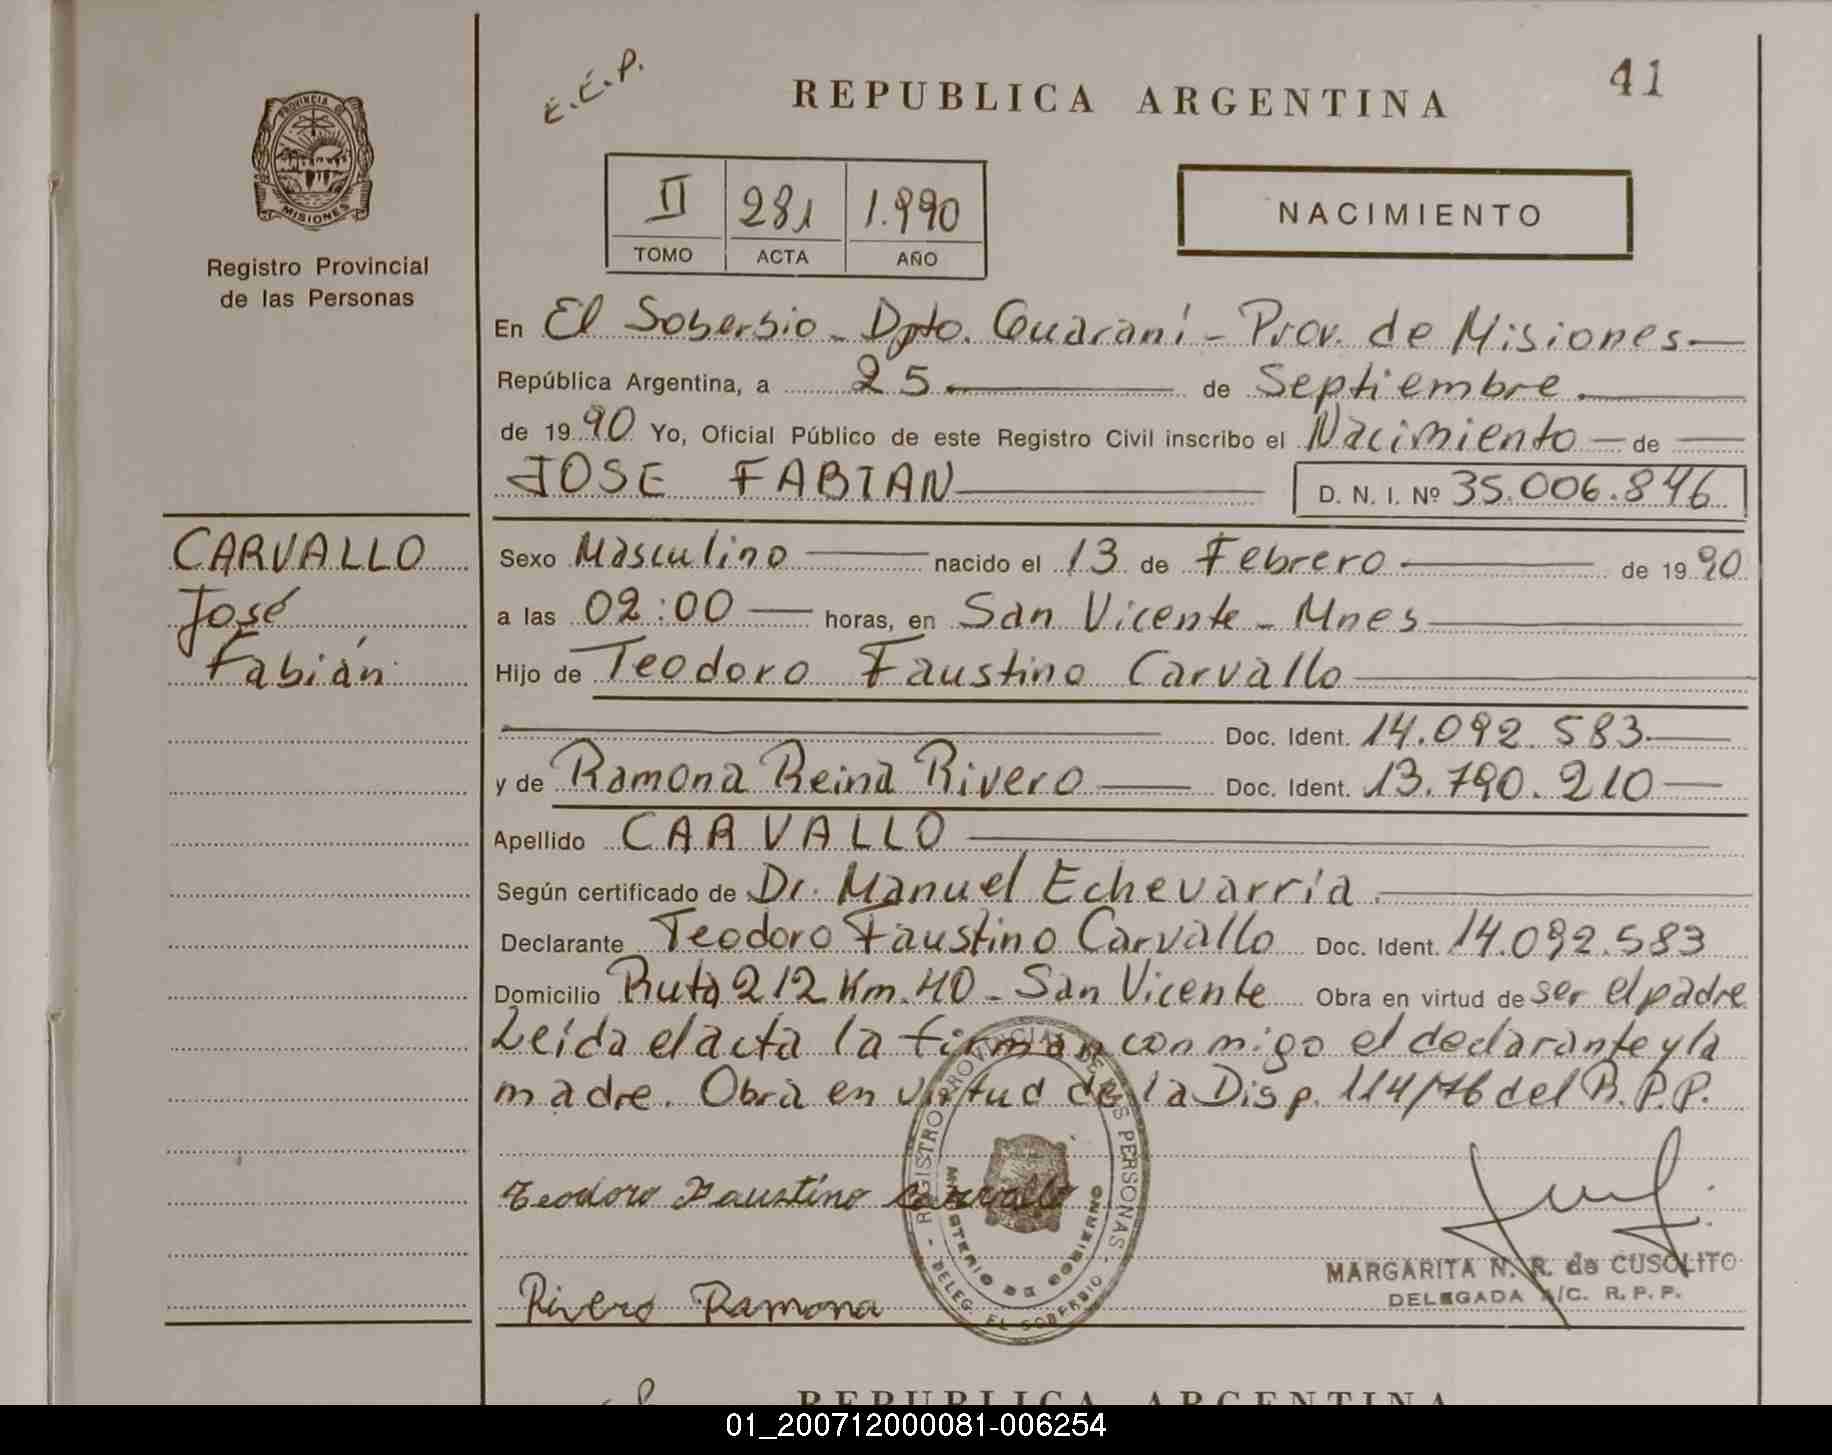 E.C.P.
REPUBLICA ARGENTINA
41
PROVINCIA D
MISIONES
II 281 1.990
TOMO ACTA AÑO
NACIMIENTO
Registro Provincial
de las Personas
En El Soberbio - Dpto. Guaraní - Prov. de Misiones
República Argentina, a 25 de Septiembre
de 1990 Yo, Oficial Público de este Registro Civil inscribo el Nacimiento de
JOSE FABIAN D. N. I. Nº 35.006.846
CARVALLO
José
Fabián
Sexo Masculino nacido el 13 de Febrero de 1990
a las 02:00 horas, en San Vicente - Mnes
Hijo de Teodoro Faustino Carvallo
Doc. Ident. 14.092.583
y de Ramona Reina Rivero Doc. Ident. 13.790.210
Apellido CARVALLO
Según certificado de Dr. Manuel Echevarría.
Declarante Teodoro Faustino Carvallo Doc. Ident. 14.092.583
Domicilio Ruta 212 Km. 40 - San Vicente Obra en virtud de ser el padre
Leída el acta la firman conmigo el declarante y la
madre. Obra en virtud de la Disp. 114/76 del R.P.P.
Teodoro Faustino Carvallo
Rivero Ramona
REGISTRO PROVINCIAL DE LAS PERSONAS
MINISTERIO DE GOBIERNO
- DELEG. EL SOBERBIO -
MARGARITA N. R. de CUSOLITO
DELEGADA A/C. R. P. P.
REPUBLICA ARGENTINA
01_200712000081-006254